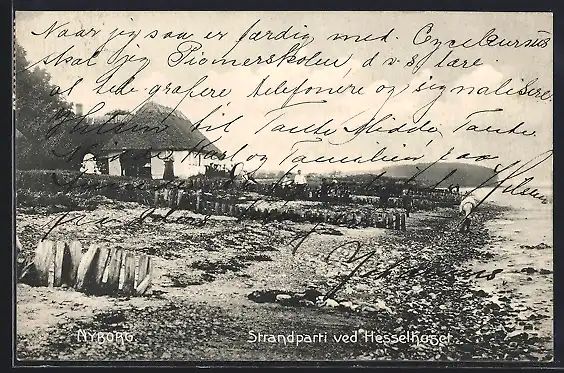 Naar jeg saa er færdig med Cyclekursus
skal jeg paa Pionerskolen, d.v.s. lære
at telegrafere telefonere og signalisere.
Hilsen til Tante Midde, Tante
og Familien, saa
Hilsen
fra
NYBORG Strandparti ved Hesselhuset